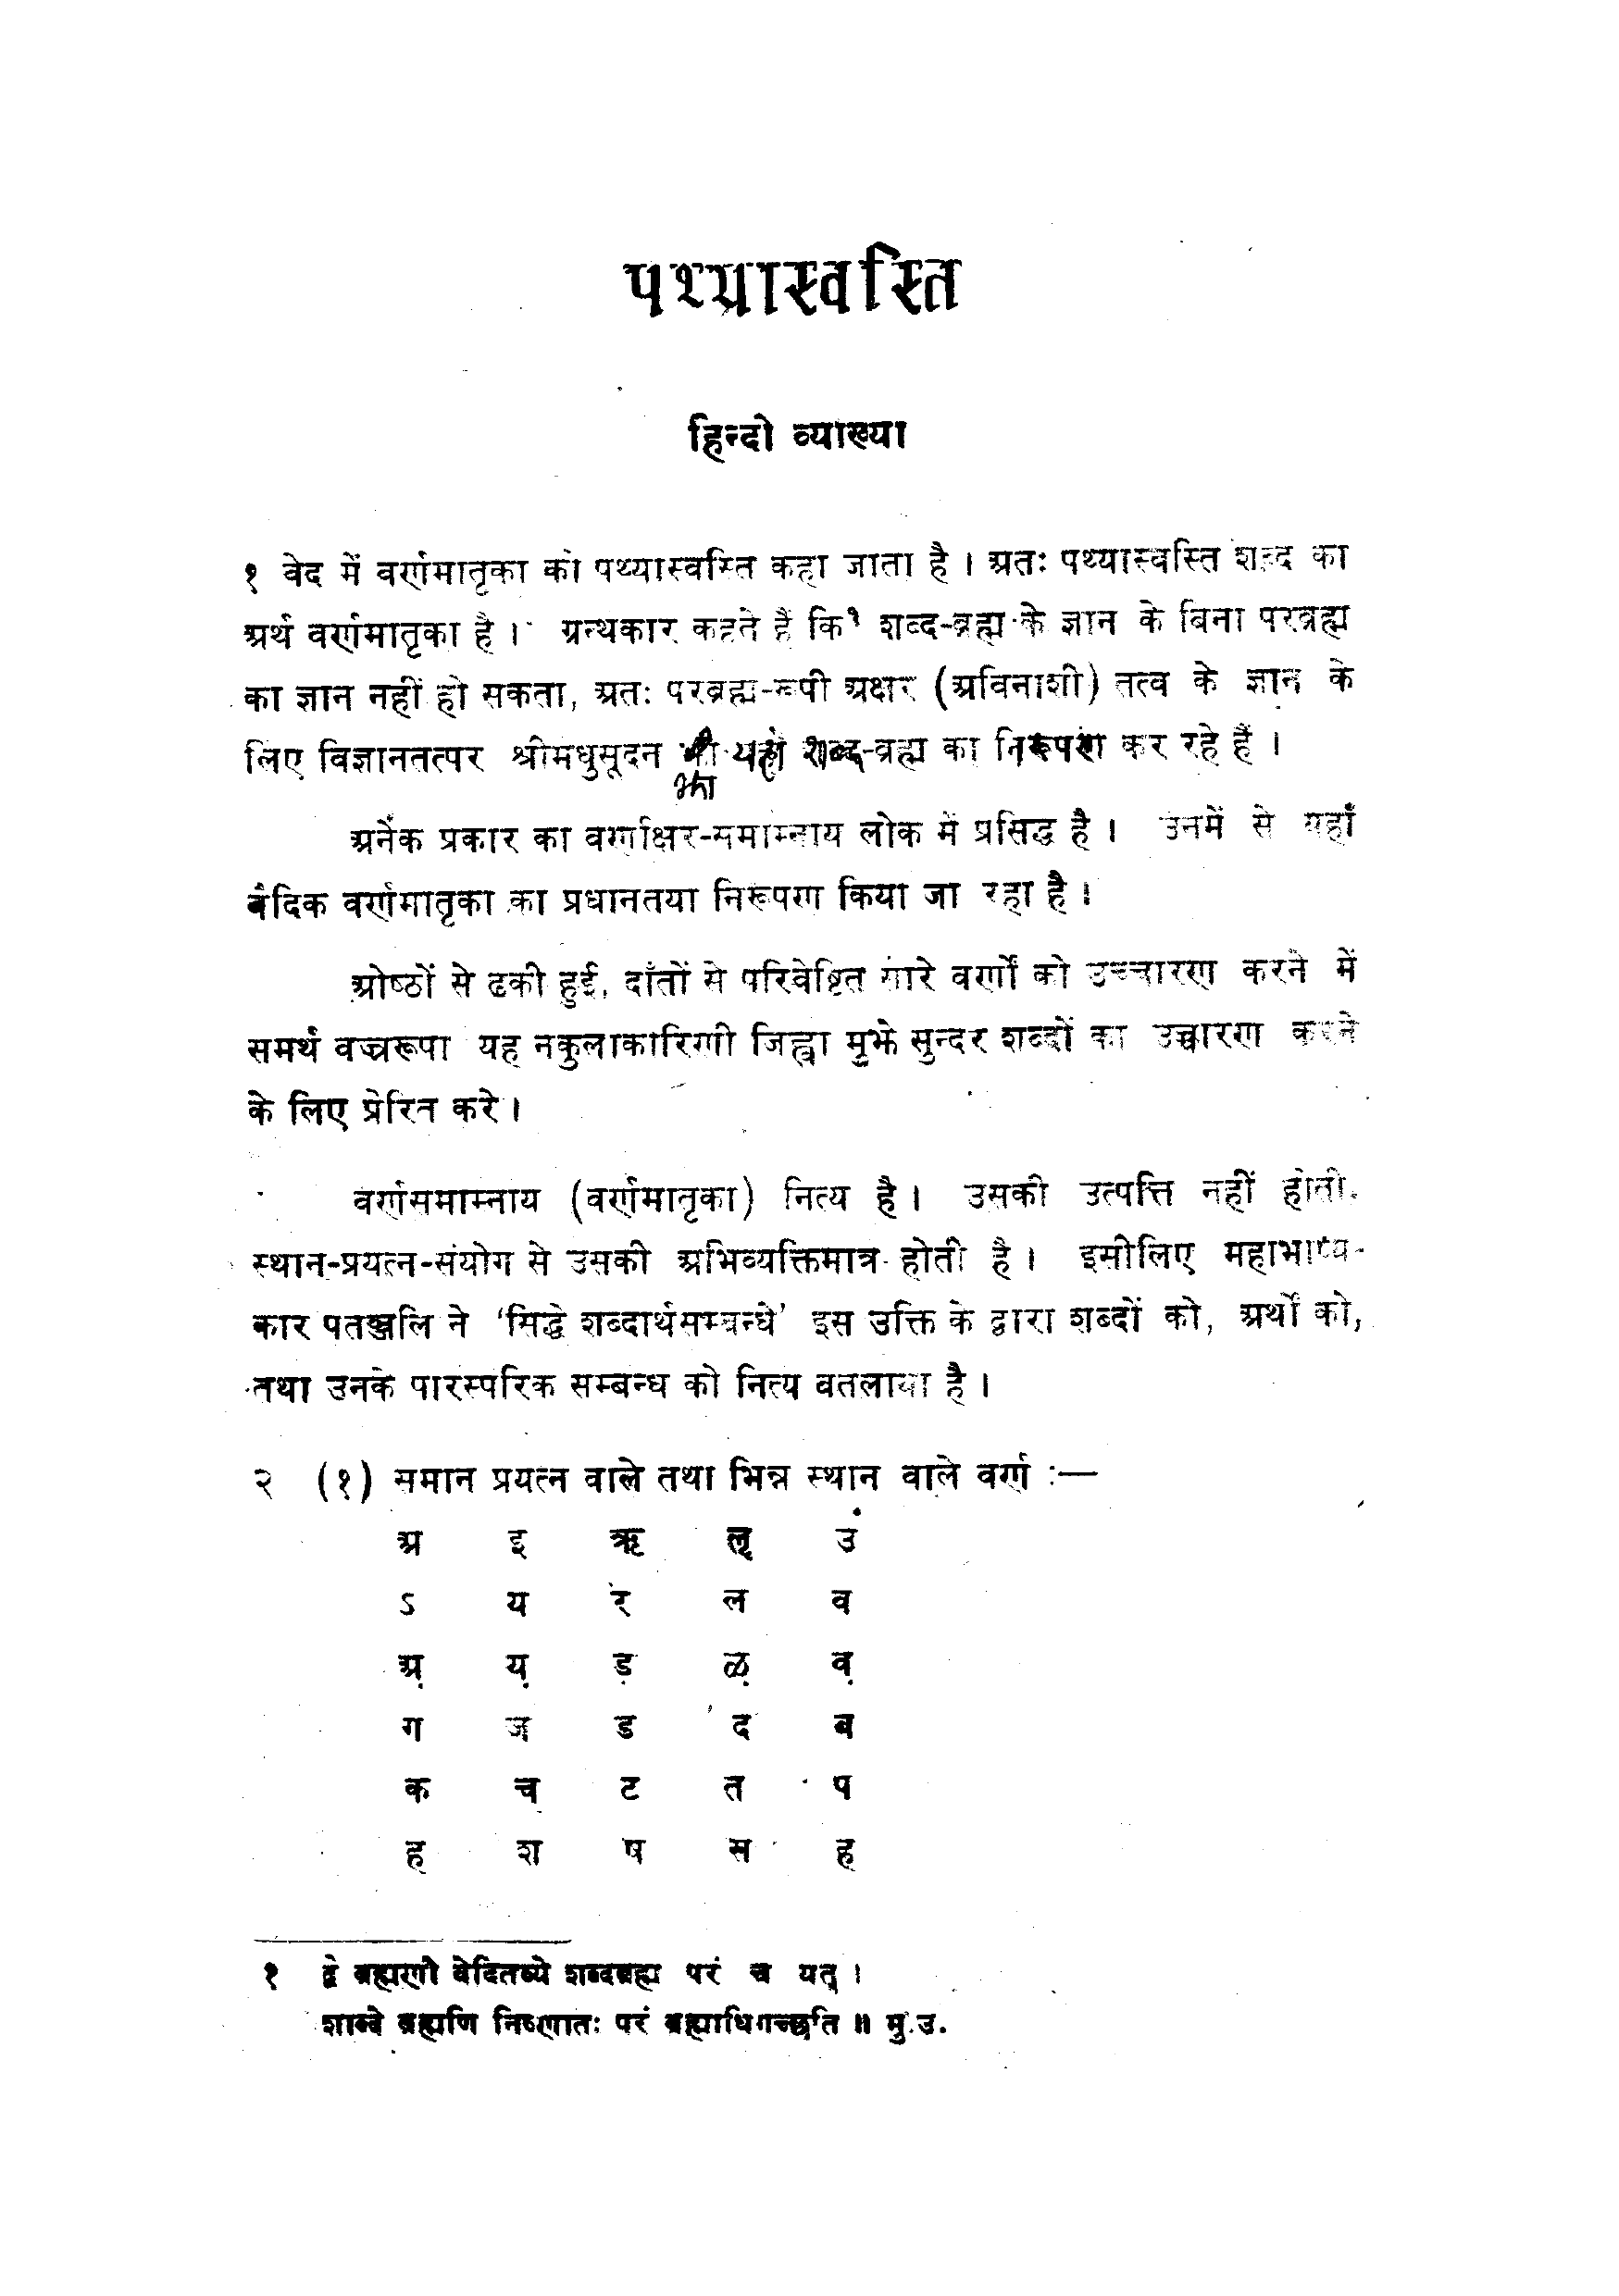 पथ्यास्वस्ति
हिन्दी व्याख्या
१ वेद में वर्णमातृका को पथ्यास्वस्ति कहा जाता है । अतः पथ्यास्वस्ति शब्द का
अर्थ वर्णमातृका है । ग्रन्थकार कहते हैं कि१ शब्द-ब्रह्म के ज्ञान के बिना परब्रह्म
का ज्ञान नहीं हो सकता, अतः परब्रह्म-रूपी अक्षर (अविनाशी) तत्व के ज्ञान के
लिए विज्ञानतत्पर श्रीमधुसूदन यहाँ शब्द-ब्रह्म का निरूपण कर रहे हैं ।
झा
अनेक प्रकार का वर्णाक्षर-समाम्नाय लोक में प्रसिद्ध है । उनमें से यहाँ
वैदिक वर्णमातृका का प्रधानतया निरूपण किया जा रहा है ।
ओष्ठों से ढकी हुई, दाँतों से परिवेष्टित सारे वर्णों को उच्चारण करने में
समर्थ वज्ररूपा यह नकुलाकारिणी जिह्वा मुझे सुन्दर शब्दों का उच्चारण करने
के लिए प्रेरित करे ।
वर्णसमाम्नाय (वर्णमातृका) नित्य है । उसकी उत्पत्ति नहीं होती.
स्थान-प्रयत्न-संयोग से उसकी अभिव्यक्तिमात्र होती है । इसीलिए महाभाष्य-
कार पतञ्जलि ने ‘सिद्धे शब्दार्थसम्बन्धे’ इस उक्ति के द्वारा शब्दों को, अर्थों को,
तथा उनके पारस्परिक सम्बन्ध को नित्य बतलाया है ।
२ (१) समान प्रयत्न वाले तथा भिन्न स्थान वाले वर्ण :—
अ इ ऋ लृ उ
ऽ य र ल व
अ़ य़ ड़ ऴ व़
ग ज ड द ब
क च ट त प
ह श ष स ह
१ द्वे ब्रह्मणी वेदितव्ये शब्दब्रह्म परं च यत् ।
शाब्दे ब्रह्मणि निष्णातः परं ब्रह्माधिगच्छति ॥ मु.उ.